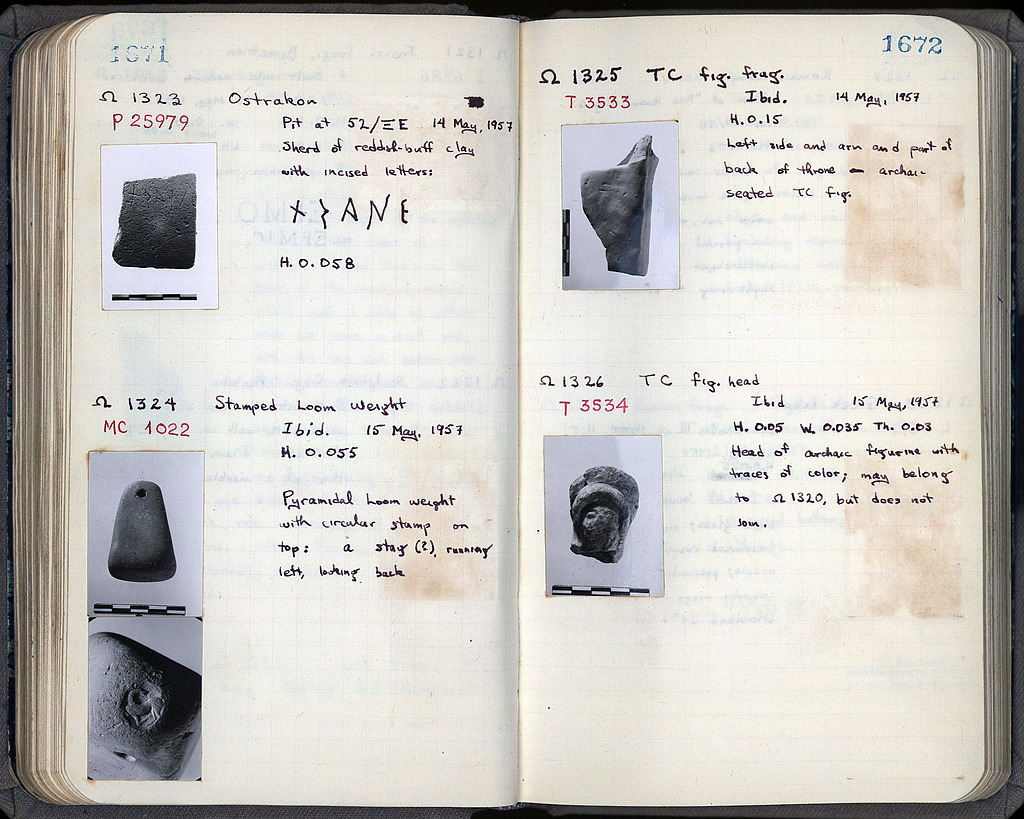 1671
Ω 1323 Ostrakon
P 25979 Pit at 52/ΞE 14 May, 1957
Sherd of reddish-buff clay
with incised letters:
H. 0.058
Ω 1324 Stamped Loom Weight
MC 1022 Ibid. 15 May, 1957
H. 0.055
Pyramidal Loom weight
with circular stamp on
top: a stag (?), running
left, looking back
1672
Ω 1325 TC fig. frag.
T 3533 Ibid. 14 May, 1957
H. 0.15
Left side and arm and part of
back of throne – archaic
seated TC fig.
Ω 1326 TC fig. head
T 3534 Ibid 15 May, 1957
H. 0.05 W. 0.035 Th. 0.03
Head of archaic figurine with
traces of color; may belong
to Ω 1320, but does not
join.